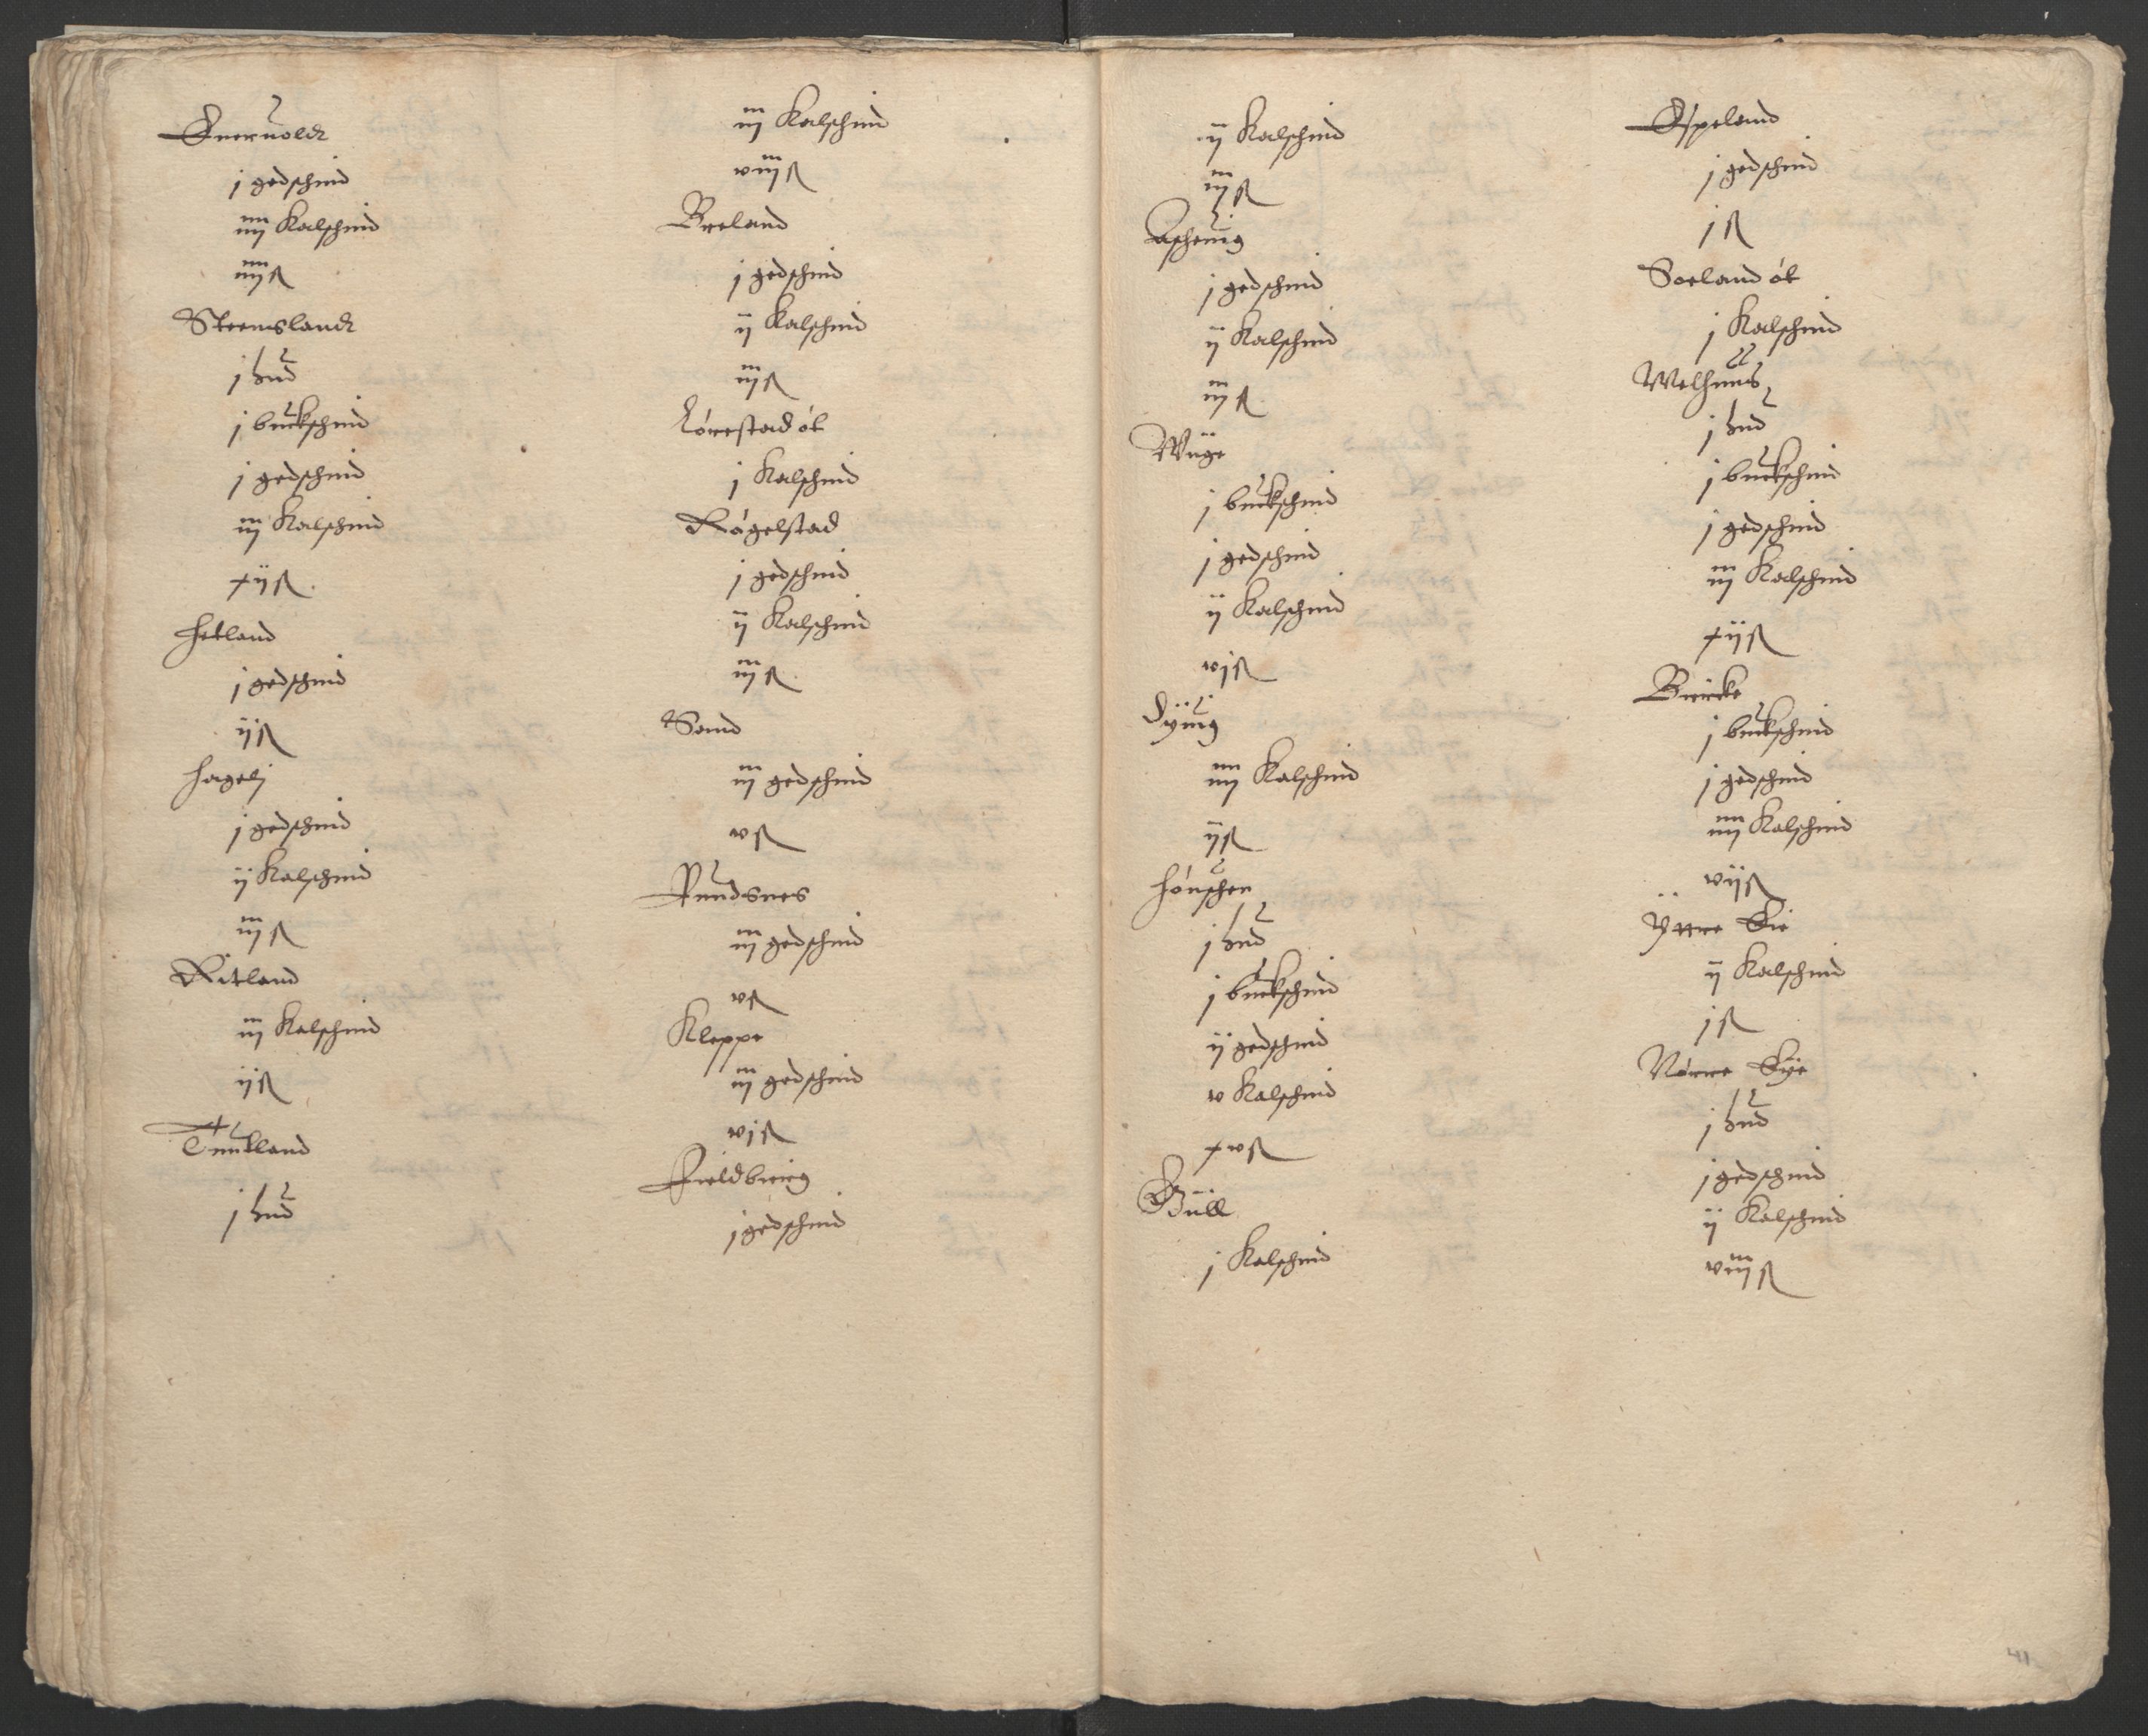 Eneruoldt
j gedschind
iiij Kalschind
iiij ß
Steenslandt
j hud
j buckschind
j gedschind
iij Kalschind
xij ß
Hetland
j gedschind
ij ß
Hagelj
j gedschind
ij Kalschind
iij ß
Ritland
iij Kalschind
ij ß
Tuutland
j hud
iij Kalschind
viij ß
Breland
j gedschind
ij Kalschind
iij ß
Lórestad ót
j Kalschind
Rógelstad
j gedschind
ij Kalschind
iij ß
Sand
iij gedschind
v ß
Rundsnes
iij gedschind
v ß
Kleppe
iij gedschind
vj ß
Fieldbierg
j gedschind
ij Kalschind
iij ß
Ascheuig
j gedschind
ij Kalschind
iij ß
Wüge
j buckschind
j gedschind
ij Kalschind
vj ß
Dÿuig
iiij Kalschind
ij ß
Hónschen
j hud
j buckschind
ij gedschind
v Kalschind
xv ß
Büll
j Kalschind
Espeland
j gedschind
j ß
Soeland ót
j Kalschind
Welhuus
j hud
j buckschind
j gedschind
iij Kalschind
xij ß
Bircke
j buckschind
j gedschind
iiij Kalschind
vij ß
Ÿttre Eie
ij Kalschind
j ß
Nórre Eÿe
j hud
j gedschind
ij Kalschind
viij ß
41